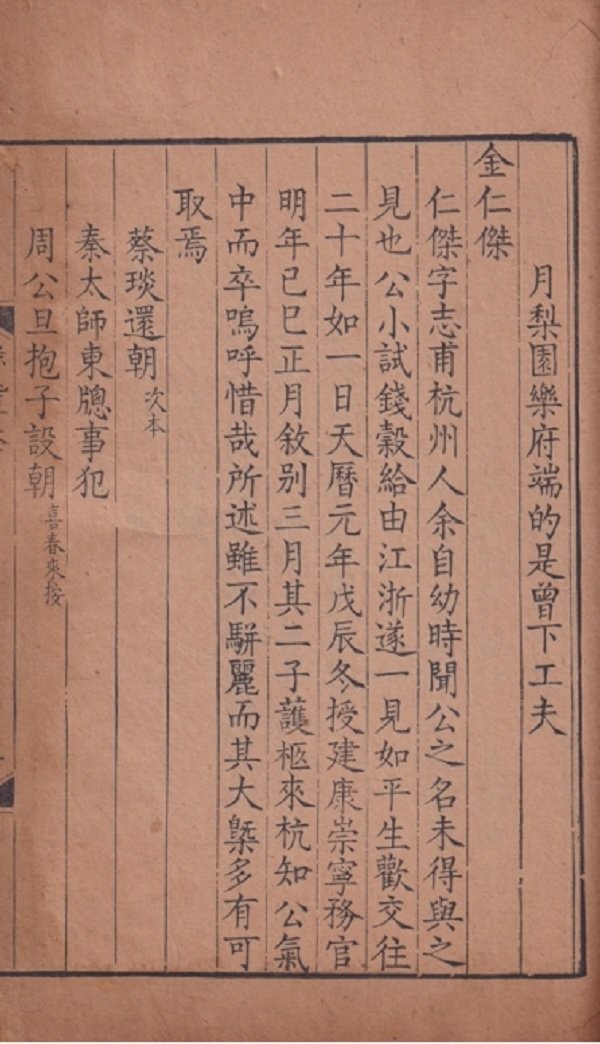 月梨園樂府端的是曾下工夫
金仁傑
仁傑字志甫杭州人余自幼時聞公之名未得與之
見也公小試錢穀給由江浙遂一見如平生歡交往
二十年如一日天曆元年戊辰冬授建康崇寧務官
明年己巳正月敘别三月其二子護柩來杭知公氣
中而卒嗚呼惜哉所述雖不駢麗而其大槩多有可
取焉
蔡琰還朝 次本
秦太師東牕事犯
周公旦抱子設朝 喜春來按